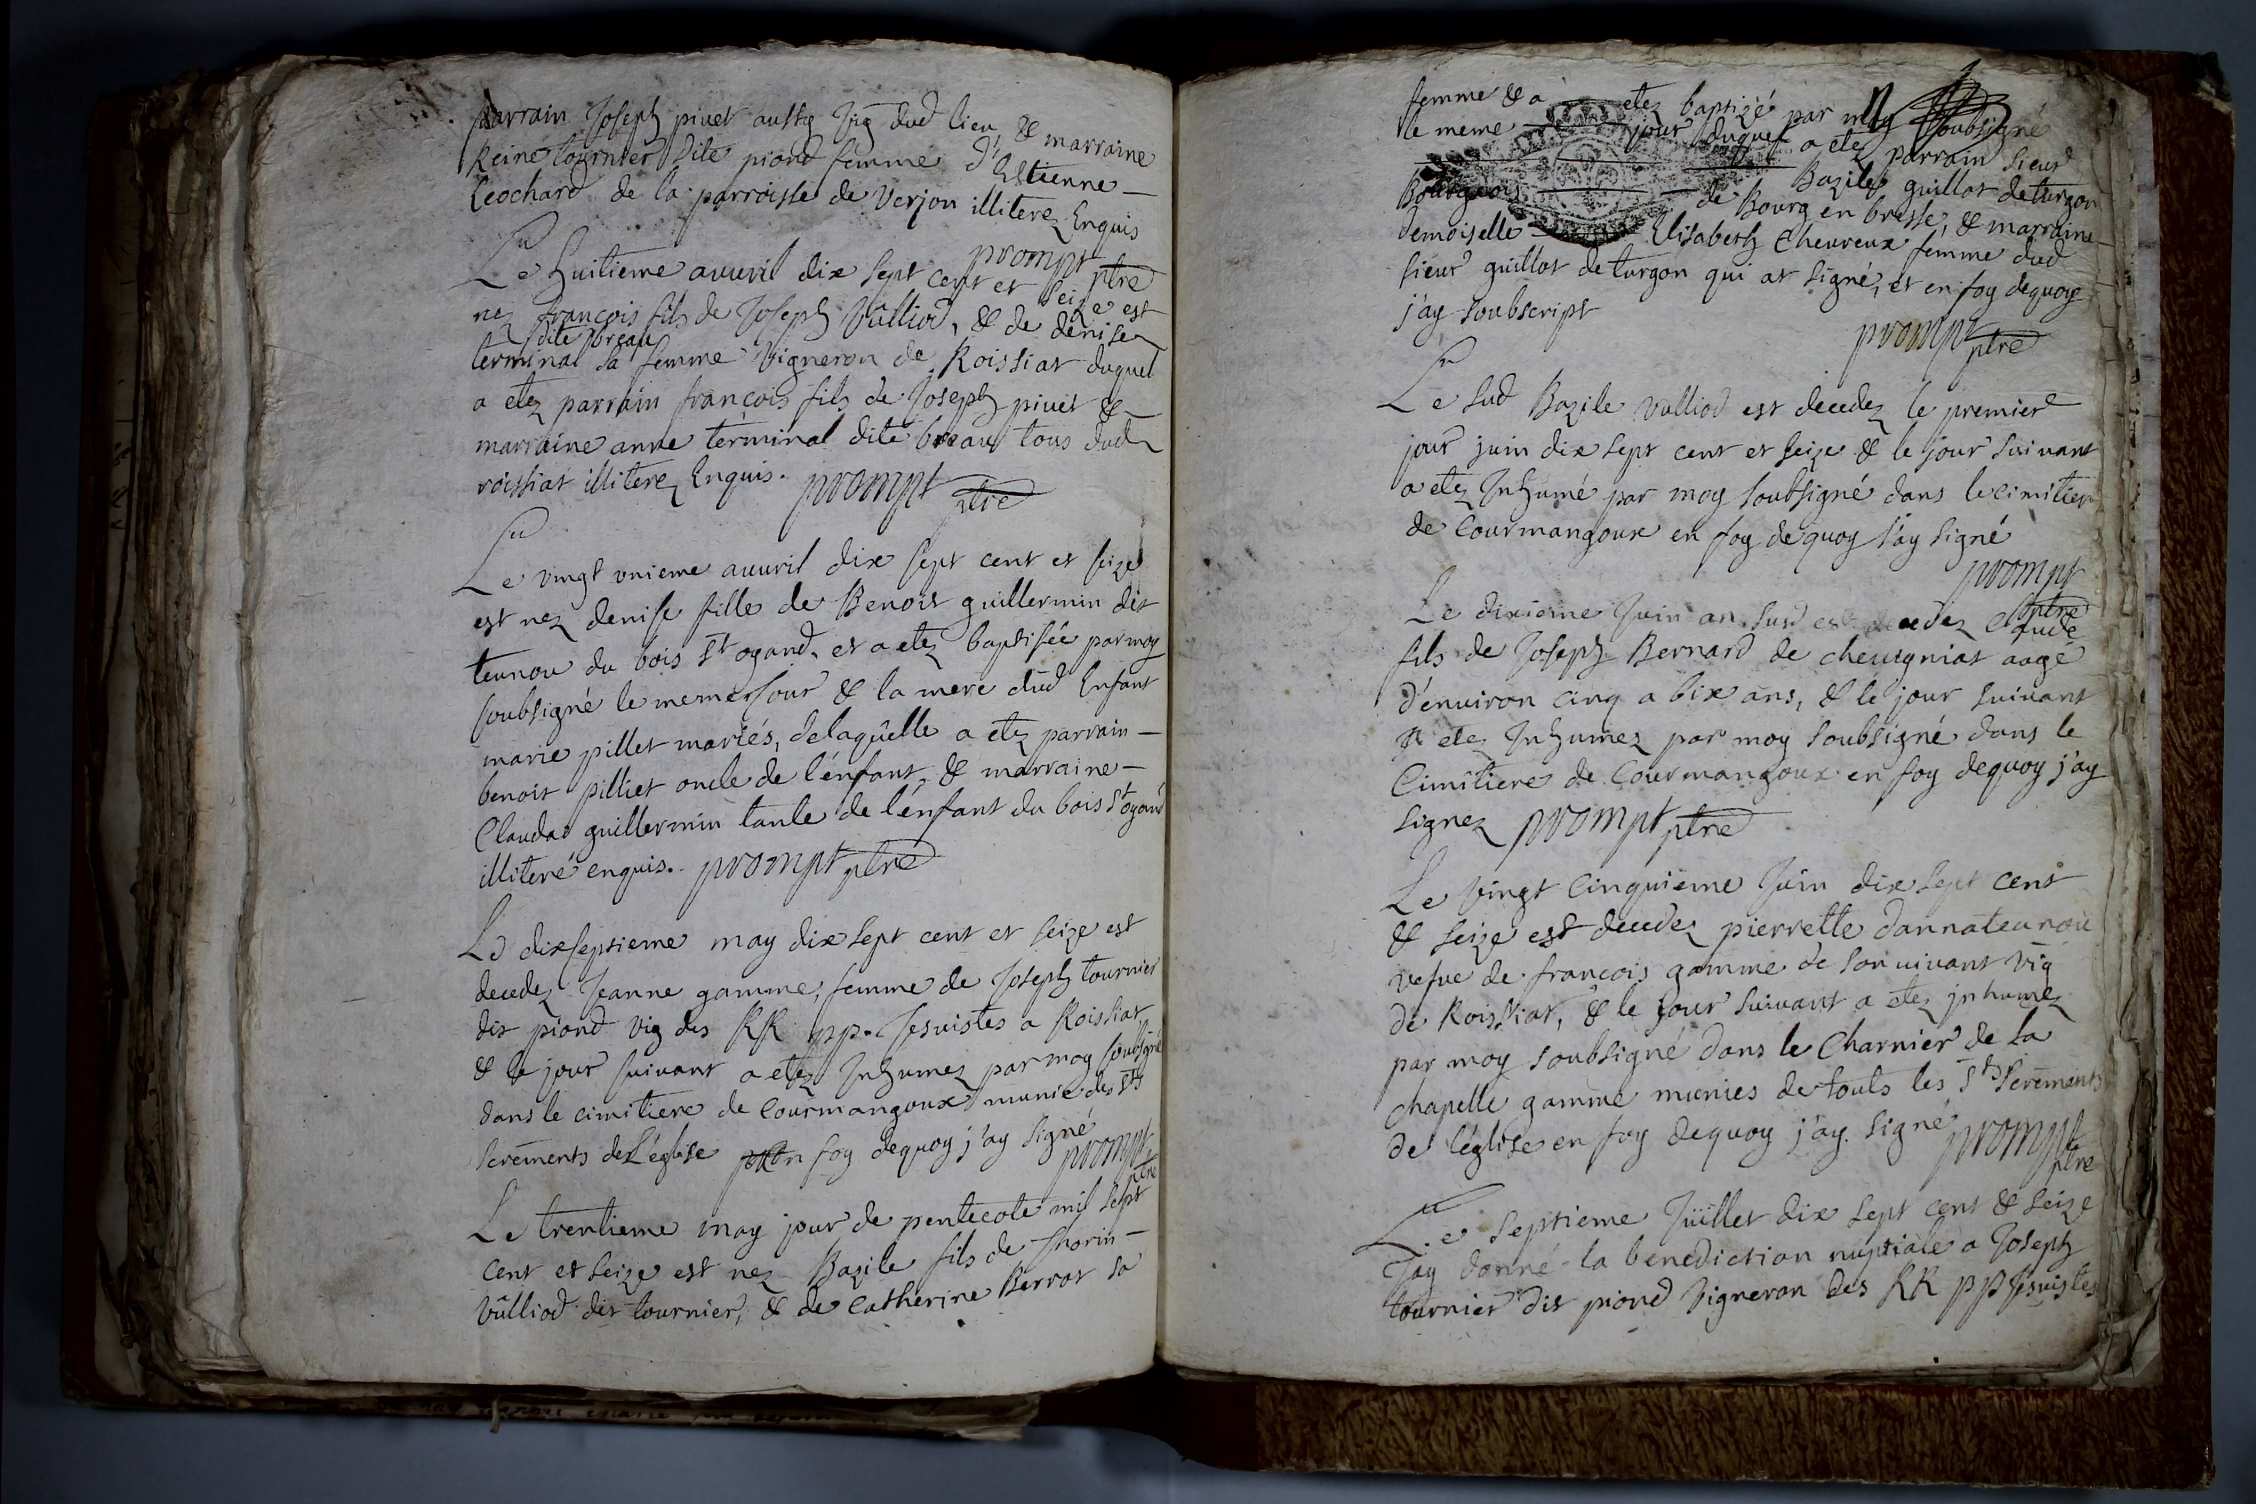 parrain Joseph pivet aussy vig dud lieu, & marraine
Reine tournier dite piond femme d'Estienne
Leochard de la parroisse de Verjon illiterez Enquis
prompt ptre
Le huitieme auuril dix sept cent et seize est
nez françois fils de Joseph Vûlliod, & de denise
dite breau
terminal sa femme vigneron de Roissiat duquel
a etez parrain françois fils de Joseph pivet &
marraine anne terminal dite breau tous dud
roissiat illiterez Enquis. prompt ptre
Le vingt vnieme auuril dix sept cent et seize
est nez denise fille de Benoit guillermin dit
teunou du bois st oyand, et a etez baptisée par moy
soubsigné le meme Jour & la mere dud Enfant
marie pillet mariés, delaqûelle a etz parrain
benoit pilliet oncle de l'énfant, & marraine
Clauda guillermin tante de l'énfant du bois st oyand
illiteré enquis. prompt ptre
Le dixseptieme may dix sept cent et seize est
decedez Jeanne gamme, femme de Joseph tournier
dit piond vig des RR pp. Jesuistes a Roissiat
& le jour suivant a etez Inhumez par moy soubsigné
dans le cimitiere de Courmangoux munie des sts
Screments de L'église en foy dequoy j'ay signé
prompt ptre
Le trentieme may jour de pentecote mil sept
cent et seize est nez Bazile fils de thorin
Vûlliod dit tournier, & de Catherine Berrot sa
femme & a etez baptizé par moy soubsigné
le meme jour duquel a etez parrain sieur
Bazile guillot de turgon
Bourgeois de Bourg en bresse, & marraine
demoiselle Elisabeth Cheureux femme dud
sieur guillot de turgon qui at signé, et en foy dequoy
j'ay soubscript
prompt ptre
Le sud Bazile vulliod est decedez le premier
jour juin dix sept cent et seize & le jour suivant
a etez Inhumé par moy soubsigné dans le cimitiere
de Courmangoux en foy dequoy j'ay signé
prompt ptre
Le dixieme Juin an susd est decedez Claude
fils de Joseph Bernard de cheuigniat aagé
d'enuiron cinq a six ans, & le jour suivant
a etez Inhumez par moy soubsigné dans le
Cimitiere de Courmangoux en foy dequoy j'ay
signez prompt ptre
Le vingt cinquieme Juin dix sept cent
& seize est decedez pierrette dannateunou
vesue de françois gamme de son uiuant vig
de Roissiat, & le jour suivant a etez jnhumez
par moy soubsigné dans le Charnier de la
chapelle gamme munies de touts les sts screments
de l'église en foy dequoy j'ay signé prompt
ptre
Le septieme Juillet dix sept cent & seize
J'ay donné la benediction nuptiale a Joseph
tournier dit piond vigneron des RR pp Jesuistes